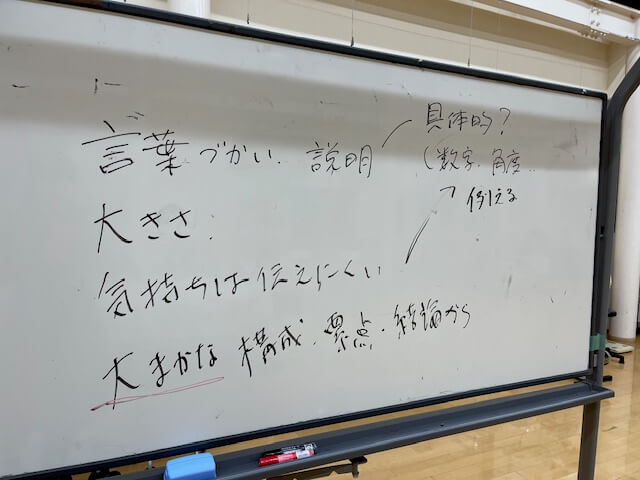 言葉づかい. 説明
具体的?
(数字. 角度..
例える
大きさ.
気持ちは伝えにくい
大まかな 構成. 要点. 結論から